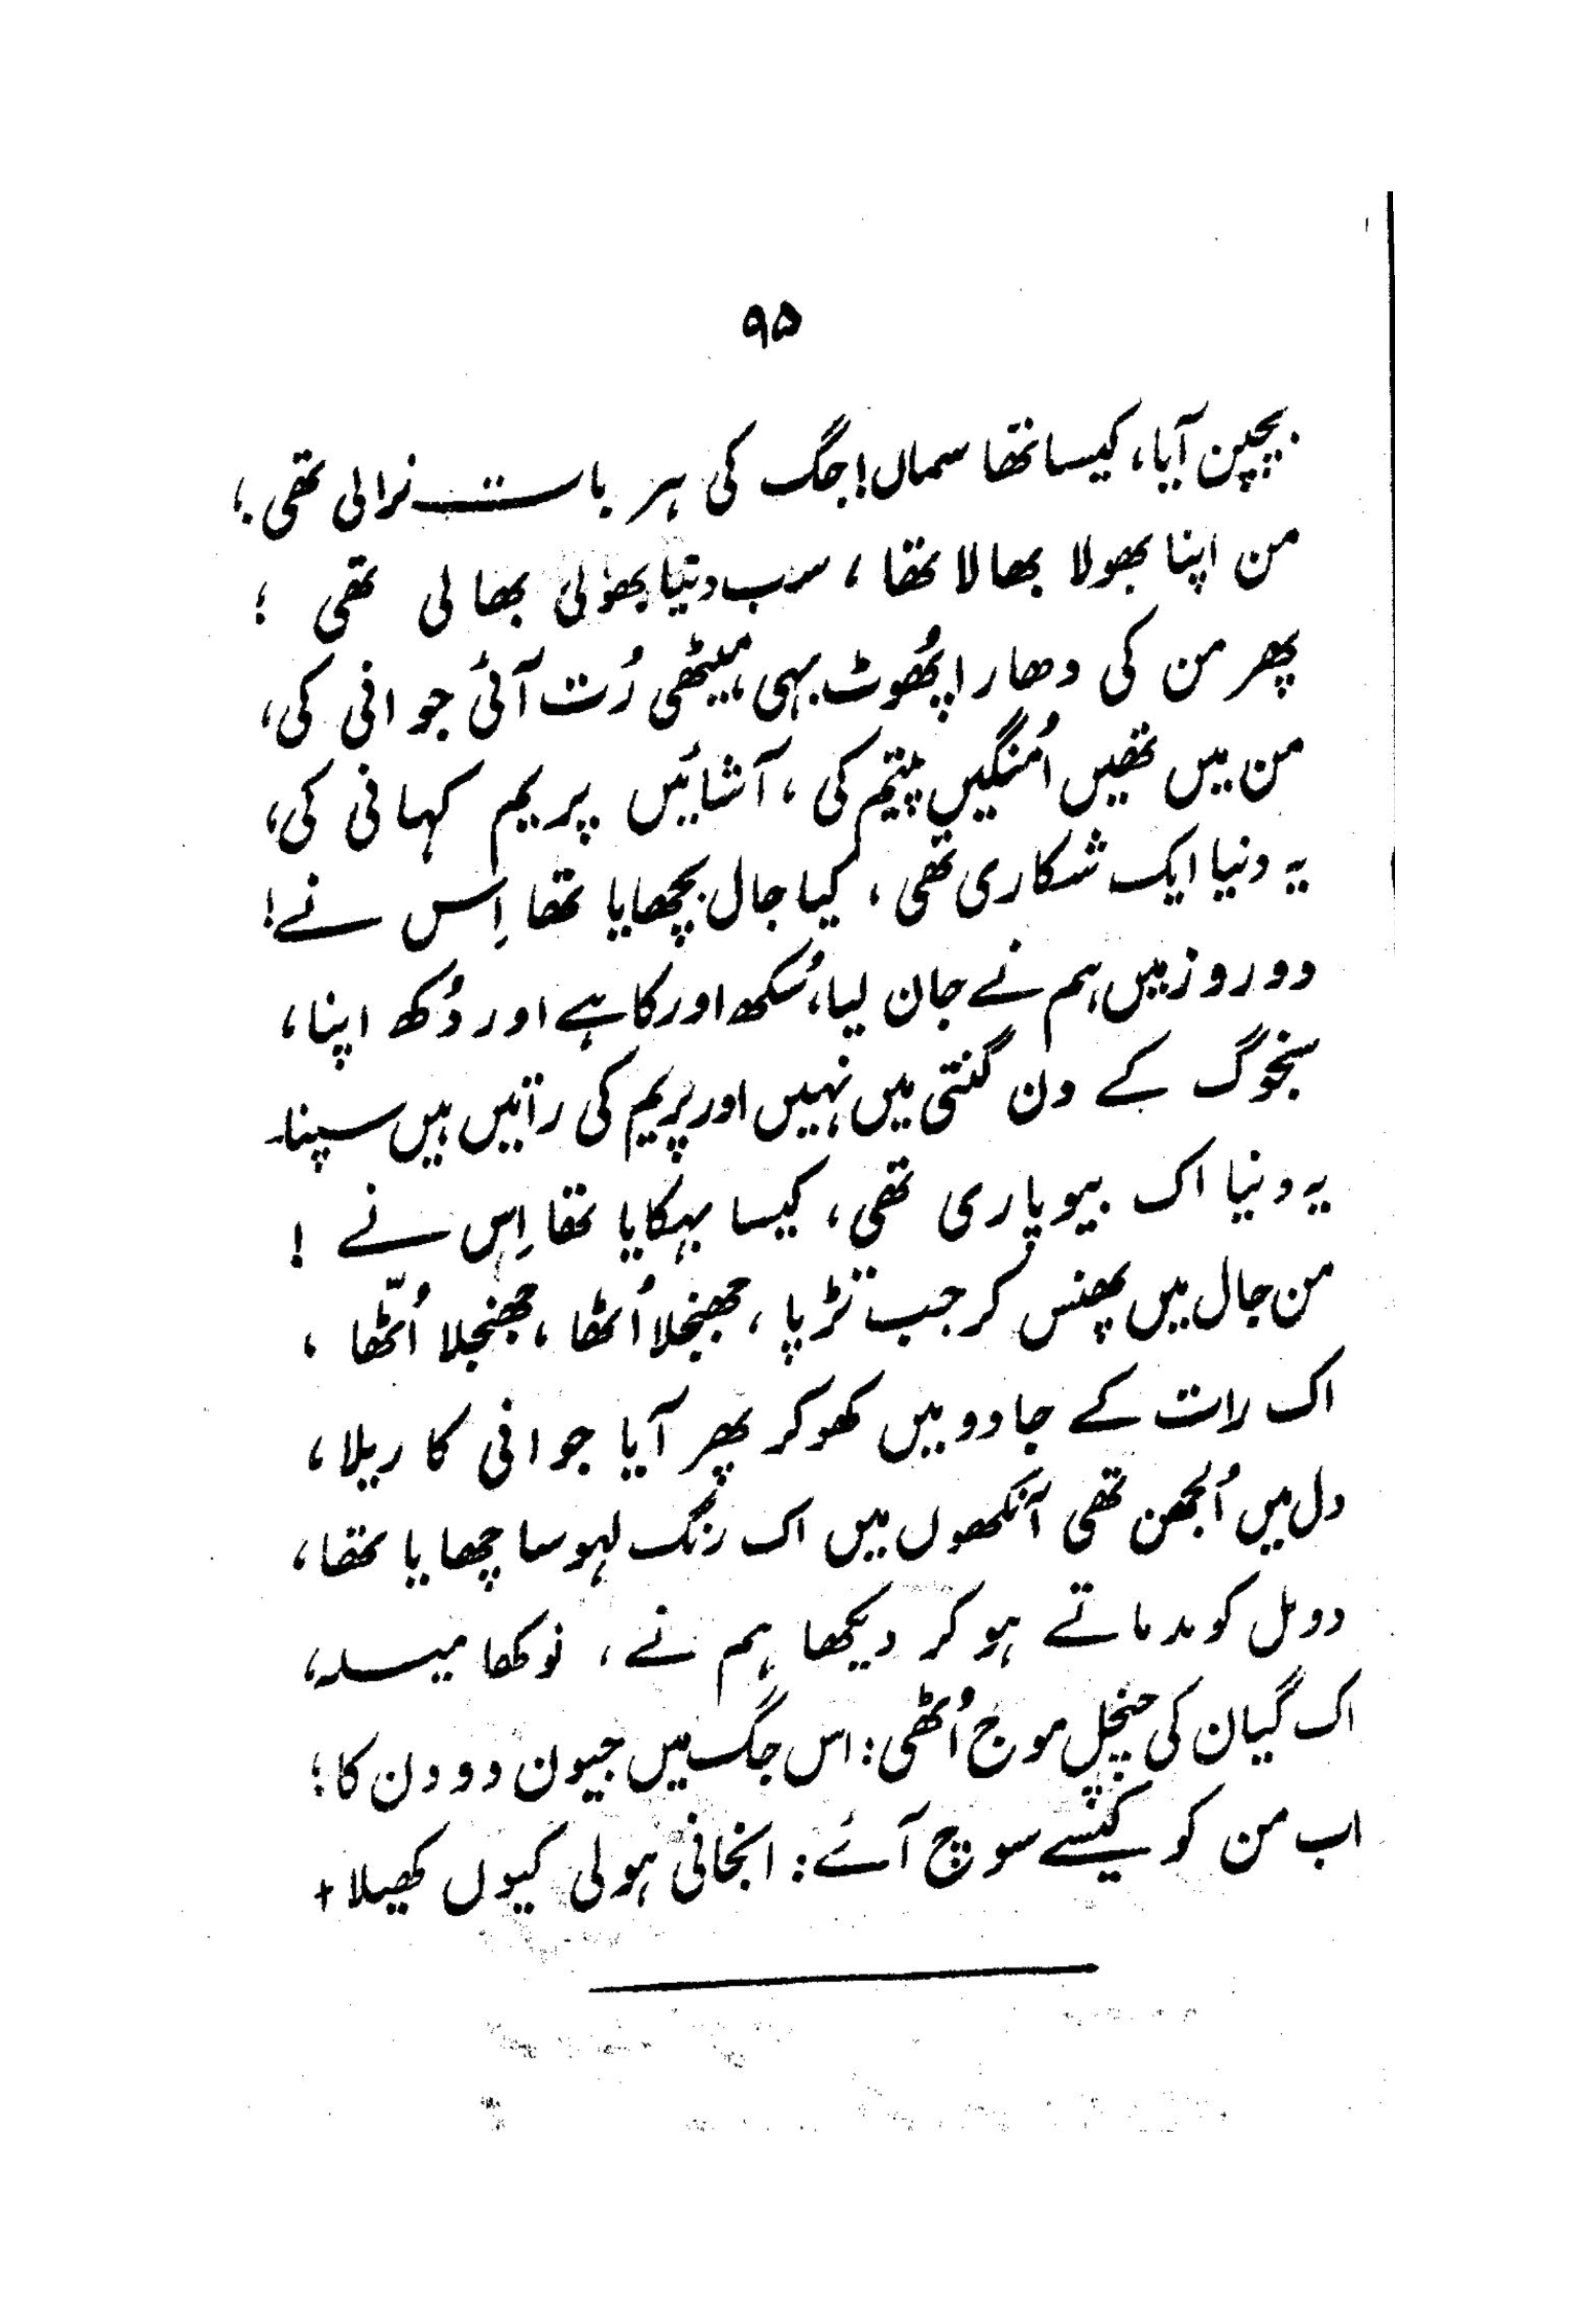 ۹۵
بچپن آیا، کیسا تھا سماں! جگ کی ہر بات نرالی تھی؛
من اپنا بھولا بھالا تھا، سب دنیا بھولی بھالی تھی؛
پھر من کی دھارا پھُوٹ بہی، میٹھی رُت آئی جوانی کی،
من میں تھیں اُمنگیں پیتم کی، آشائیں پریم کہانی کی،
یہ دنیا ایک شکاری تھی، کیا جال بچھایا تھا اِس نے!
دو روز میں ہم نے جان لیا، سُکھ اور کا ہے اور دُکھ اپنا،
سنجوگ کے دن گنتی میں نہیں اور پریم کی راتیں ہیں سپنا۔
یہ دنیا اک بیوپاری تھی، کیسا بہکایا تھا اِس نے!
من جال میں پھنس کر جب تڑپا، جھنجلا اُٹھا، جھنجلا اُٹّھا،
اک رات کے جادو میں کھو کر پھر آیا جوانی کا ریلا،
دل میں اُلجھن تھی آنکھوں میں اک رنگ لہو سا چھایا تھا،
دو پل کو مدماتے ہو کر دیکھا ہم نے، نوکھا میلہ،
اک گیان کی چنچل موج اُٹھی: اس جگ میں جیون دو دن کا؛
اب من کو کیسے سوچ آئے: انجانی ہولی کیوں کھیلا +